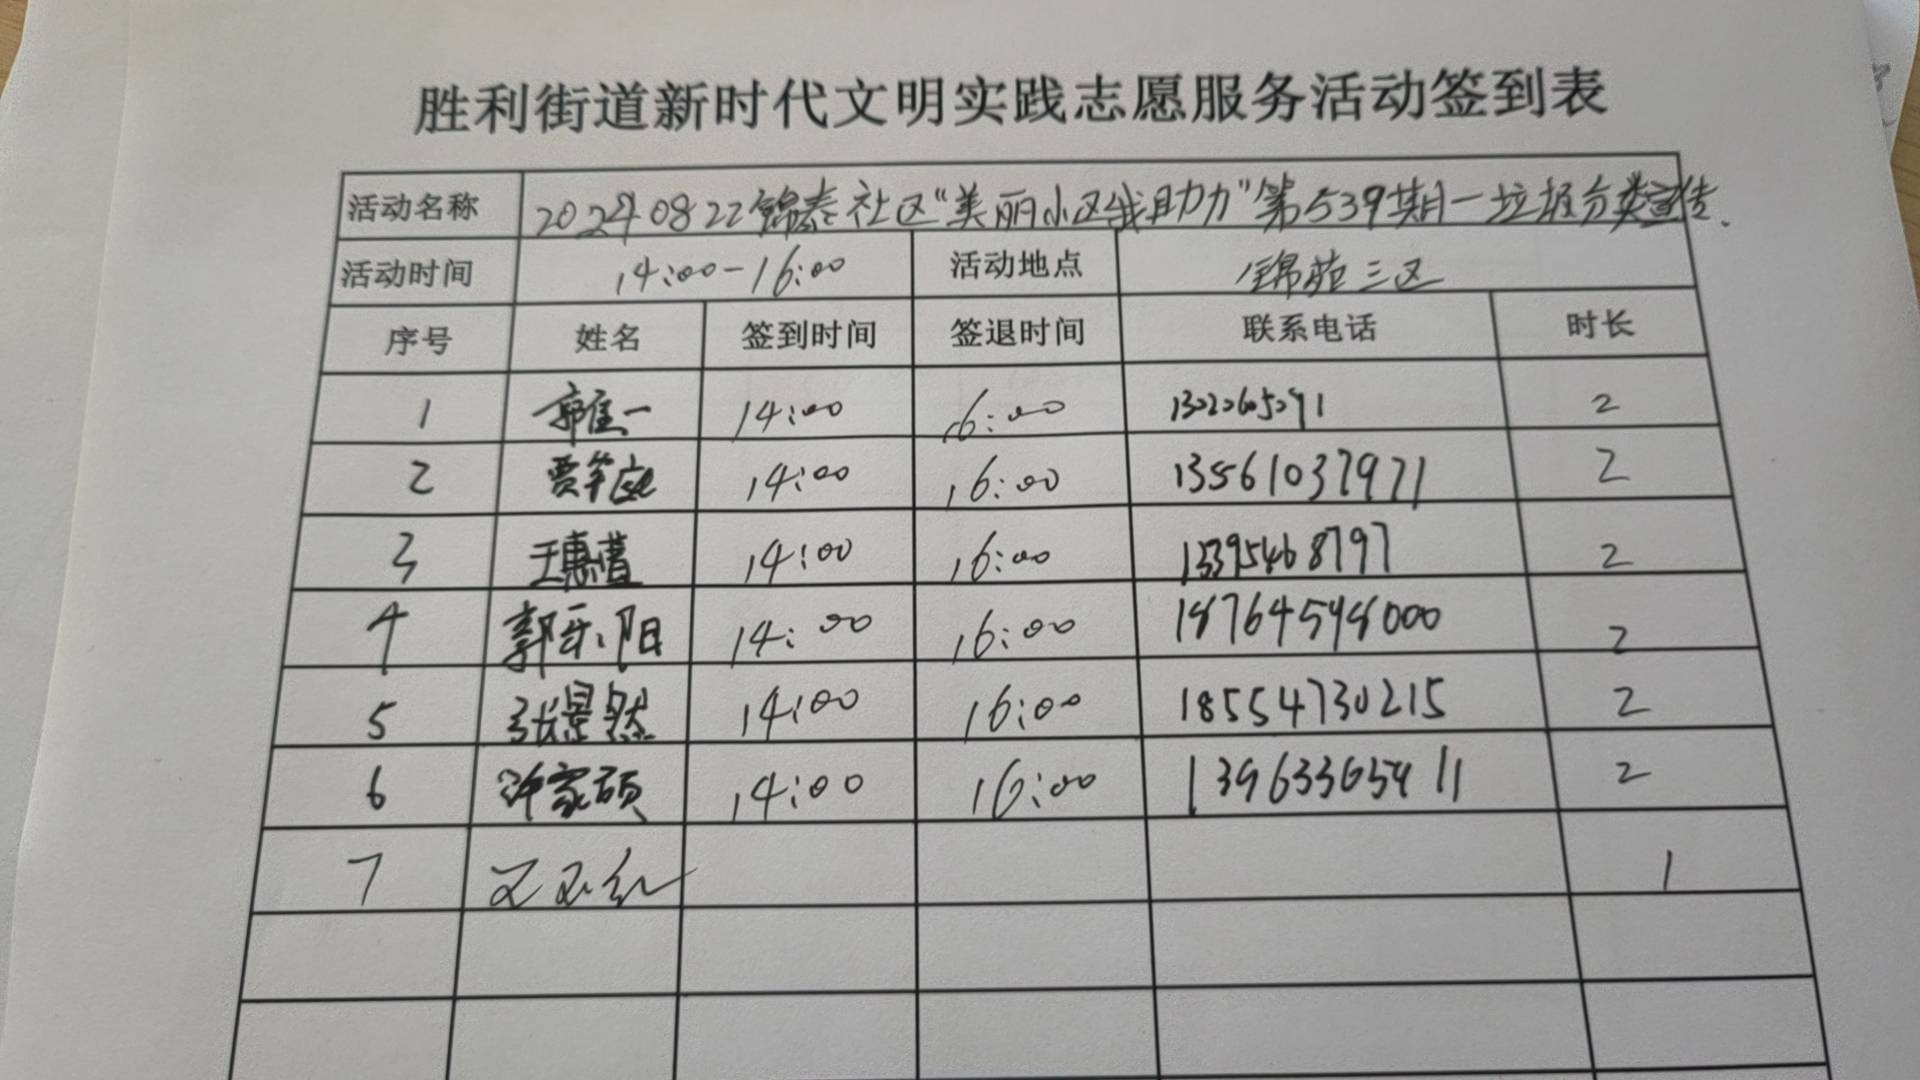 胜利街道新时代文明实践志愿服务活动签到表
活动名称 20240822锦泰社区“美丽小区我助力”第539期一垃圾分类宣传.
活动时间 14:00-16:00 活动地点 锦苑三区
序号 姓名 签到时间 签退时间 联系电话 时长
1 郭佳一 14:00 16:00 2
2 14:00 16:00 13561037971 2
3 王惠 14:00 16:00 13395468797 2
4 郭乐阳 14:00 16:00 18764548000 2
5 张景然 14:00 16:00 18554730215 2
6 许家硕 14:00 16:00 13963365411 2
7 1